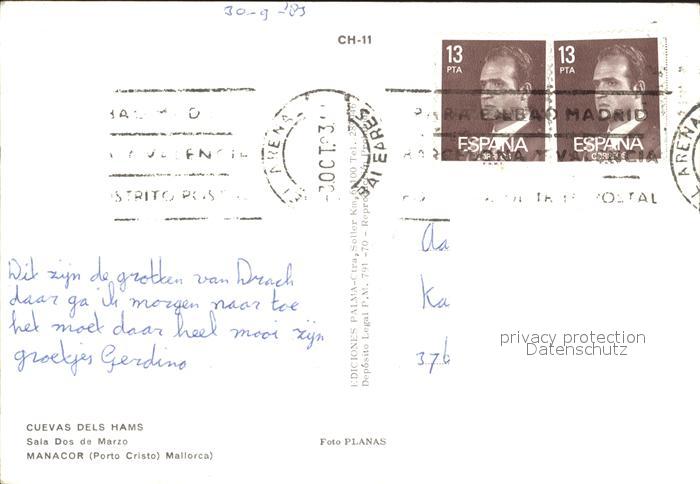 30-9-'83
CH-11
13
PTA
ESPAÑA
CORREOS
13
PTA
ESPAÑA
CORREOS
PARA BILBAO MADRID
BARCELONA Y VALENCIA
DISTRITO POSTAL
ARENAL
3 OCT.83
BALEARES
ARENA
Dit zijn de grotten van Drach
daar ga ik morgen naar toe
het moet daar heel mooi zijn
groetjes Gerdina
Aa
Ka
376
privacy protection
Datenschutz
EDICIONES PALMA-Ctra, Soller Km,
Depósito Legal P.M. 791-70 -
CUEVAS DELS HAMS
Sala Dos de Marzo
MANACOR (Porto Cristo) Mallorca)
Foto PLANAS